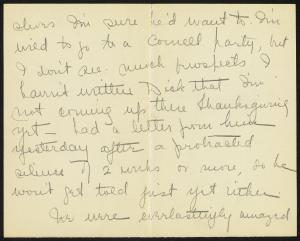 shows I'm sure he'd want to. I'm
wild to go to a Cornell party, but
I don't see much prospects I
haven't written Dick that I'm
not coming up there Thanksgiving
yet – had a letter from him
yesterday after a protracted
silence of 2 weeks or more, so he
won't get told just yet either
We were everlastingly amazed